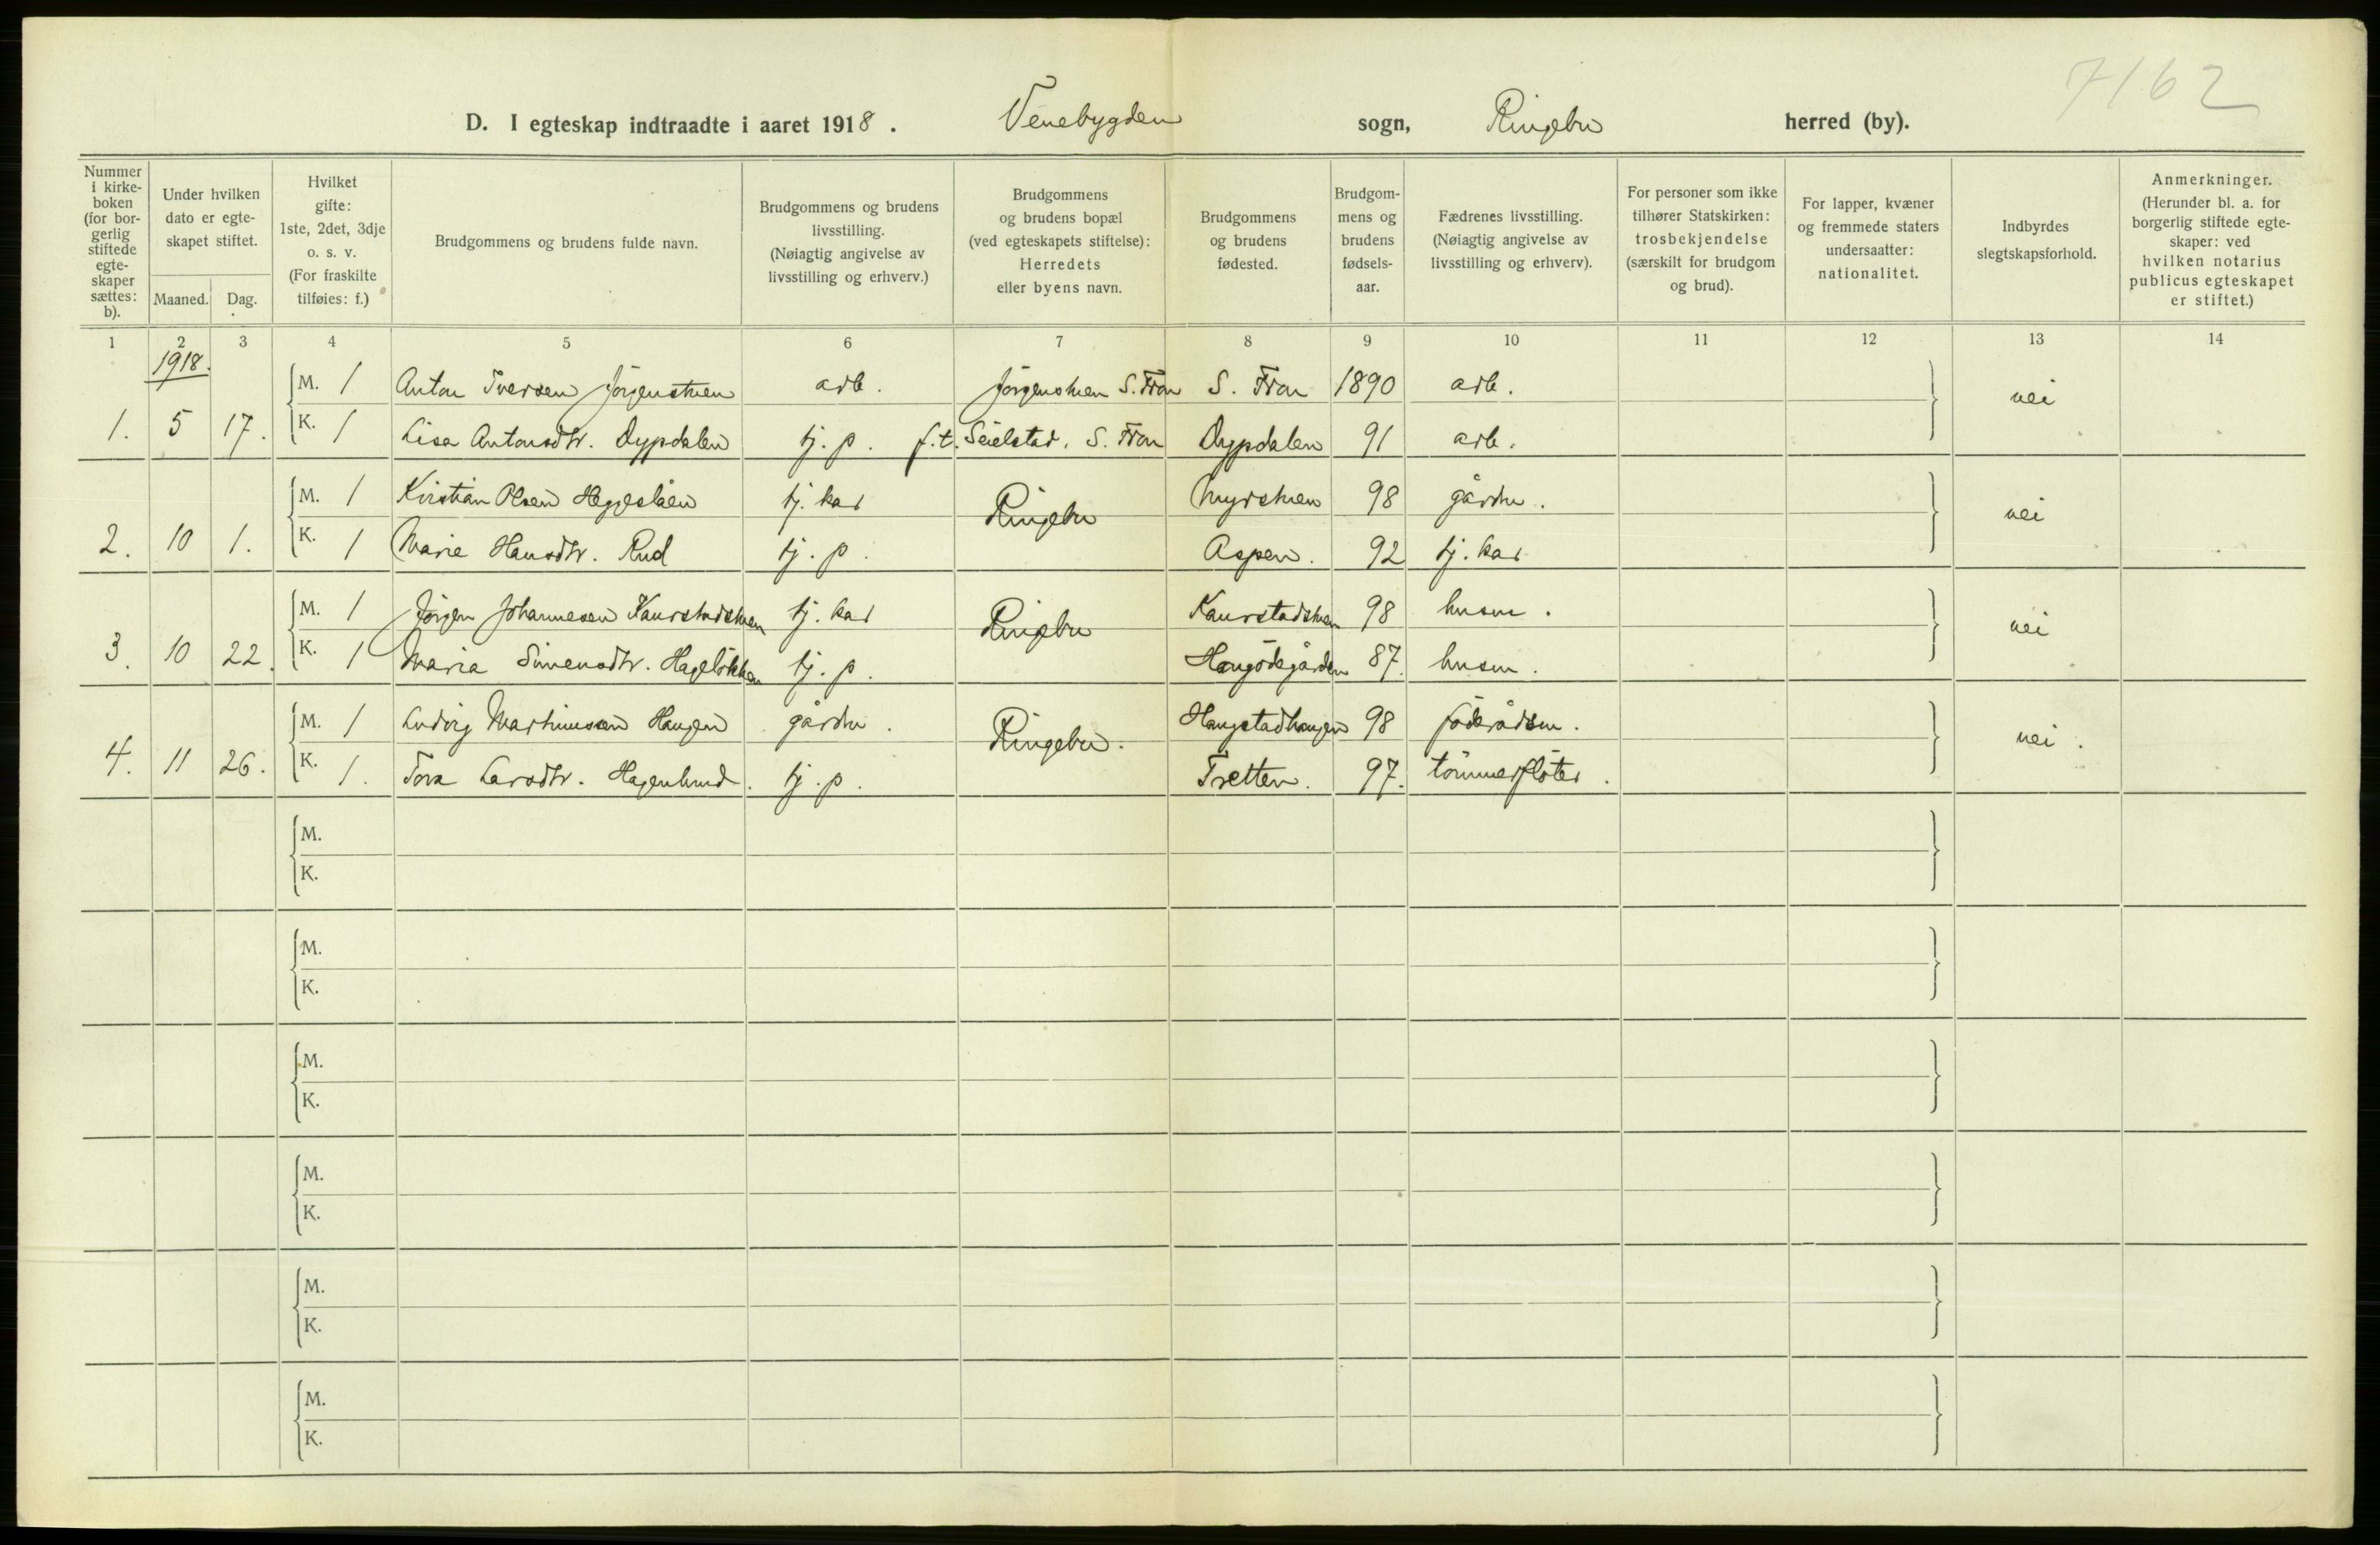 7162
D. I egteskap indtraadte i aaret 1918. Venebygden sogn, Ringebu herred (by).
Nummer i kirke-boken (for bor-gerlig stiftede egte-skaper sættes: b).
Under hvilken dato er egte-skapet stiftet.
Maaned. Dag.
Hvilket gifte: 1ste, 2det, 3dje o. s. v. (For fraskilte tilføies: f.)
Brudgommens og brudens fulde navn.
Brudgommens og brudens livsstilling. (Nøiagtig angivelse av livsstilling og erhverv.)
Brudgommens og brudens bopæl (ved egteskapets stiftelse): Herredets eller byens navn.
Brudgommens og brudens fødested.
Brudgom-mens og brudens fødsels-aar.
Fædrenes livsstilling. (Nøiagtig angivelse av livsstilling og erhverv).
For personer som ikke tilhører Statskirken: trosbekjendelse (særskilt for brudgom og brud).
For lapper, kvæner og fremmede staters undersaatter: nationalitet.
Indbyrdes slegtskapsforhold.
Anmerkninger. (Herunder bl. a. for borgerlig stiftede egte-skaper: ved hvilken notarius publicus egteskapet er stiftet.)
1 2 3 4 5 6 7 8 9 10 11 12 13 14
1918.
M. 1 Anton Iversen Jörgenstuen arb. Jörgenstuen S. Fron S. Fron 1890 arb. nei
1. 5 17. K. 1 Lisa Antonsdtr. Dypdalen tj. p. f.t. Seielstad, S. Fron Dypdalen 91 arb.
M. 1 Kristian Olsen Heggeslåen tj. kar Ringebu Myrstuen 98 gårdbr. nei
2. 10 1. K. 1 Marie Hansdtr. Rud tj. p. Aspen. 92 tj. kar
M. 1 Jörgen Johannesen Kaurstadstuen tj. kar Ringebu Kaurstadstuen 98 husm. nei
3. 10 22. K. 1 Maria Simensdtr. Hagelökken tj. p. 87. husm.
M. 1 Ludvig Martinussen Haugen gårdbr. Ringebu. Haugstadhaugen 98 föderådsm. nei.
4. 11 26. K. 1. Tora Larsdtr. Hagenlund. tj. p. Tretten. 97. tömmerflöter.
M.
K.
M.
K.
M.
K.
M.
K.
M.
K.
M.
K.